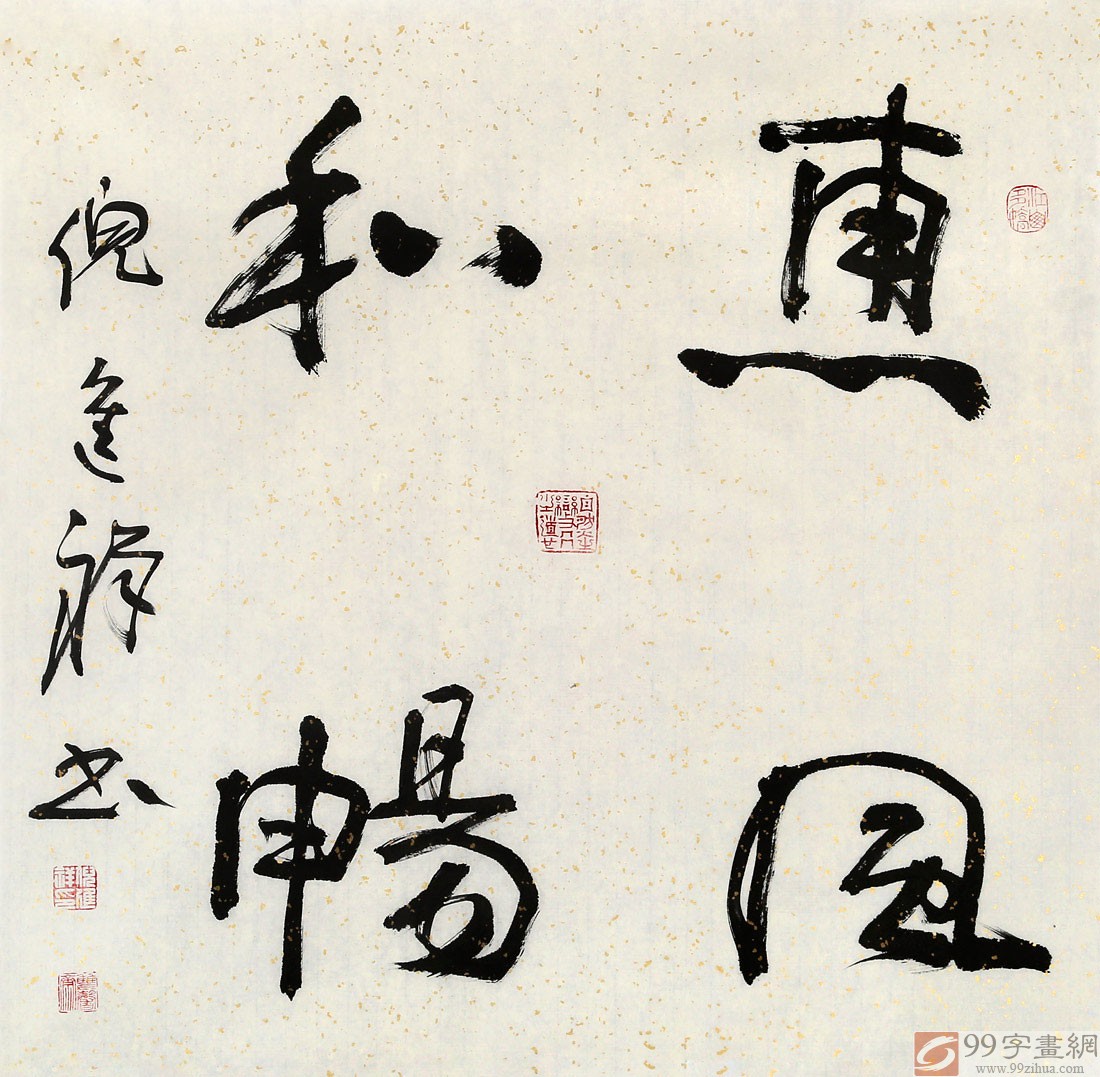 惠風
和暢
倪進祥书
99字畫網
www.99zihua.com